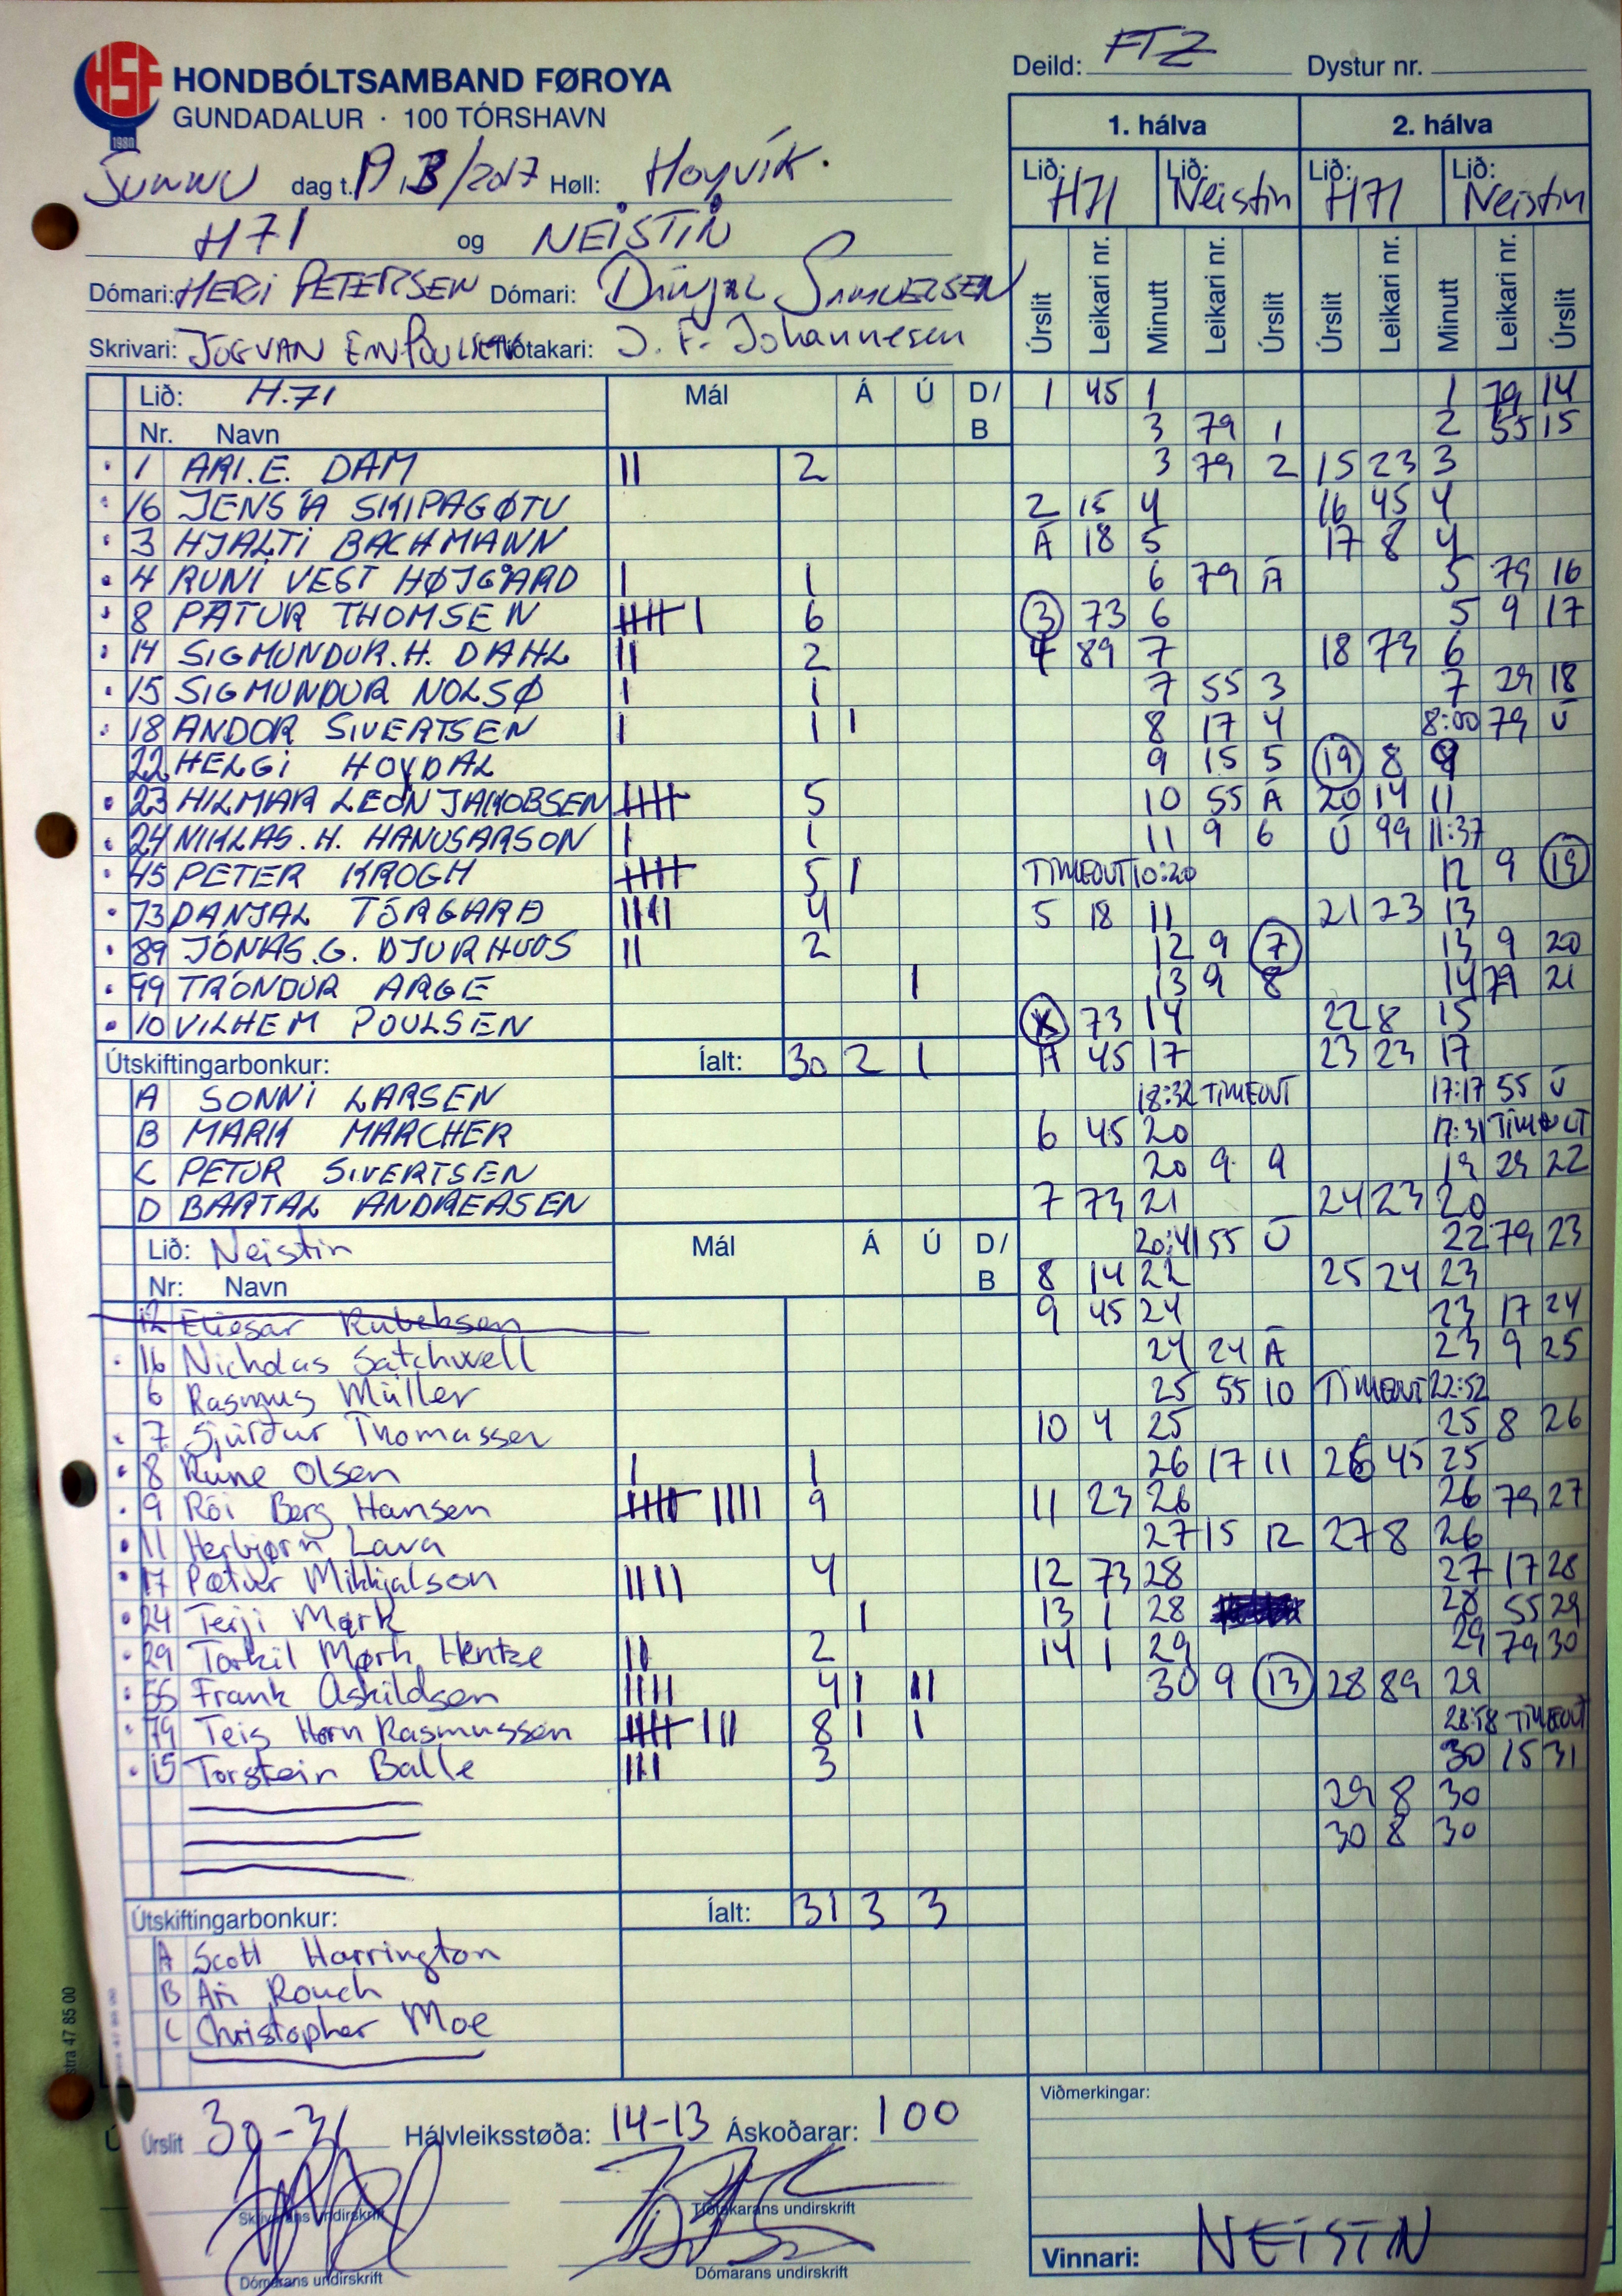 HSF
1980
HONDBÓLTSAMBAND FØROYA
GUNDADALUR · 100 TÓRSHAVN
Deild: FTZ Dystur nr.
SUNNU dag t. 19.3/2017 Høll: Hoyvík.
H71 og NEISTIN
Dómari: HERI PETERSEN Dómari: SAMUELSEN
Skrivari: JÓGVAN Tíðtakari: J. F. Johannesen
1. hálva 2. hálva
Lið: H71 Lið: Neistin Lið: H71 Lið: Neistin
Úrslit Leikari nr. Minutt Leikari nr. Úrslit Úrslit Leikari nr. Minutt Leikari nr. Úrslit
Lið: H.71 Mál Á Ú D/B
Nr. Navn
1 ARI.E. DAM 2
16 JENS Á SKIPAGØTU
3 HJALTI BACHMANN
4 RUNI VEST HØJGÅRD 1
8 PÆTUR THOMSEN 6
14 SIGMUNDUR.H. DAHL 2
15 SIGMUNDUR NOLSØ 1
18 ANDOR SIVERTSEN 1 I
22 HELGI HOYDAL
23 HILMAR LEON JAKOBSEN 5
24 NIKLAS.H. HANUSARSON 1
45 PETER KROGH 5 I
73 DANJAL TÓRGARÐ 4
89 JÓNAS.G. DJURHUUS 2
99 TRÓNDUR ARGE I
10 VILHEM POULSEN
Útskiftingarbonkur: Íalt: 30 2 1
A SONNI LARSEN
B MARK MARCHER
C PETUR SIVERTSEN
D BARTAL ANDREASEN
Lið: Neistin Mál Á Ú D/B
Nr: Navn
12 Eliesar Rubeksen
16 Nicholas Satchwell
6 Rasmus Müller
7 Sjúrður Thomassen
8 Rune Olsen 1
9 Rói Berg Hansen 9
11 Herbjørn Lava
17 Pætur Mikkjalson 4
24 Terji Mørk I
29 Torkil Mørk Hentze 2
55 Frank Oskildsen 4 I II
79 Teis Horn Rasmussen 8 I I
15 Torstein Balle 3
Útskiftingarbonkur: Íalt: 31 3 3
A Scott Harrington
B Ari Rouch
C Christopher Moe
1 45 1
3 79 1
3 79 2
2 15 4
Á 18 5
6 79 Á
3 73 6
4 89 7
7 55 3
8 17 4
9 15 5
10 55 Á
11 9 6
TIMEOUT 10:20
5 18 11
12 9 7
13 9 8
X 73 14
Á 45 17
18:32 TIMEOUT
6 45 20
20 9 9
7 73 21
20:41 55 Ú
8 14 22
9 45 24
24 24 Á
25 55 10
10 4 25
26 17 11
11 23 26
27 15 12
12 73 28
13 1 28
14 1 29
30 9 13
1 79 14
2 55 15
15 23 3
16 45 4
17 8 4
5 79 16
5 9 17
18 73 6
7 29 18
8:00 79 Ú
19 8 9
20 14 11
Ú 99 11:37
12 9 19
21 23 13
13 9 20
14 79 21
22 8 15
23 23 17
17:17 55 Ú
17:31 TIMEOUT
19 29 22
24 23 20
22 79 23
25 24 23
23 17 24
23 9 25
TIMEOUT 22:52
25 8 26
26 45 25
26 79 27
27 8 26
27 17 28
28 55 29
29 79 30
28 89 29
28:58 TIMEOUT
30 15 31
29 8 30
30 8 30
Úrslit 30-31 Hálvleiksstøða: 14-13 Áskoðarar: 100
Skrivarans undirskrift Tíðtakarans undirskrift
Dómarans undirskrift Dómarans undirskrift
Viðmerkingar:
Vinnari: NEISTIN
stra 47 85 00